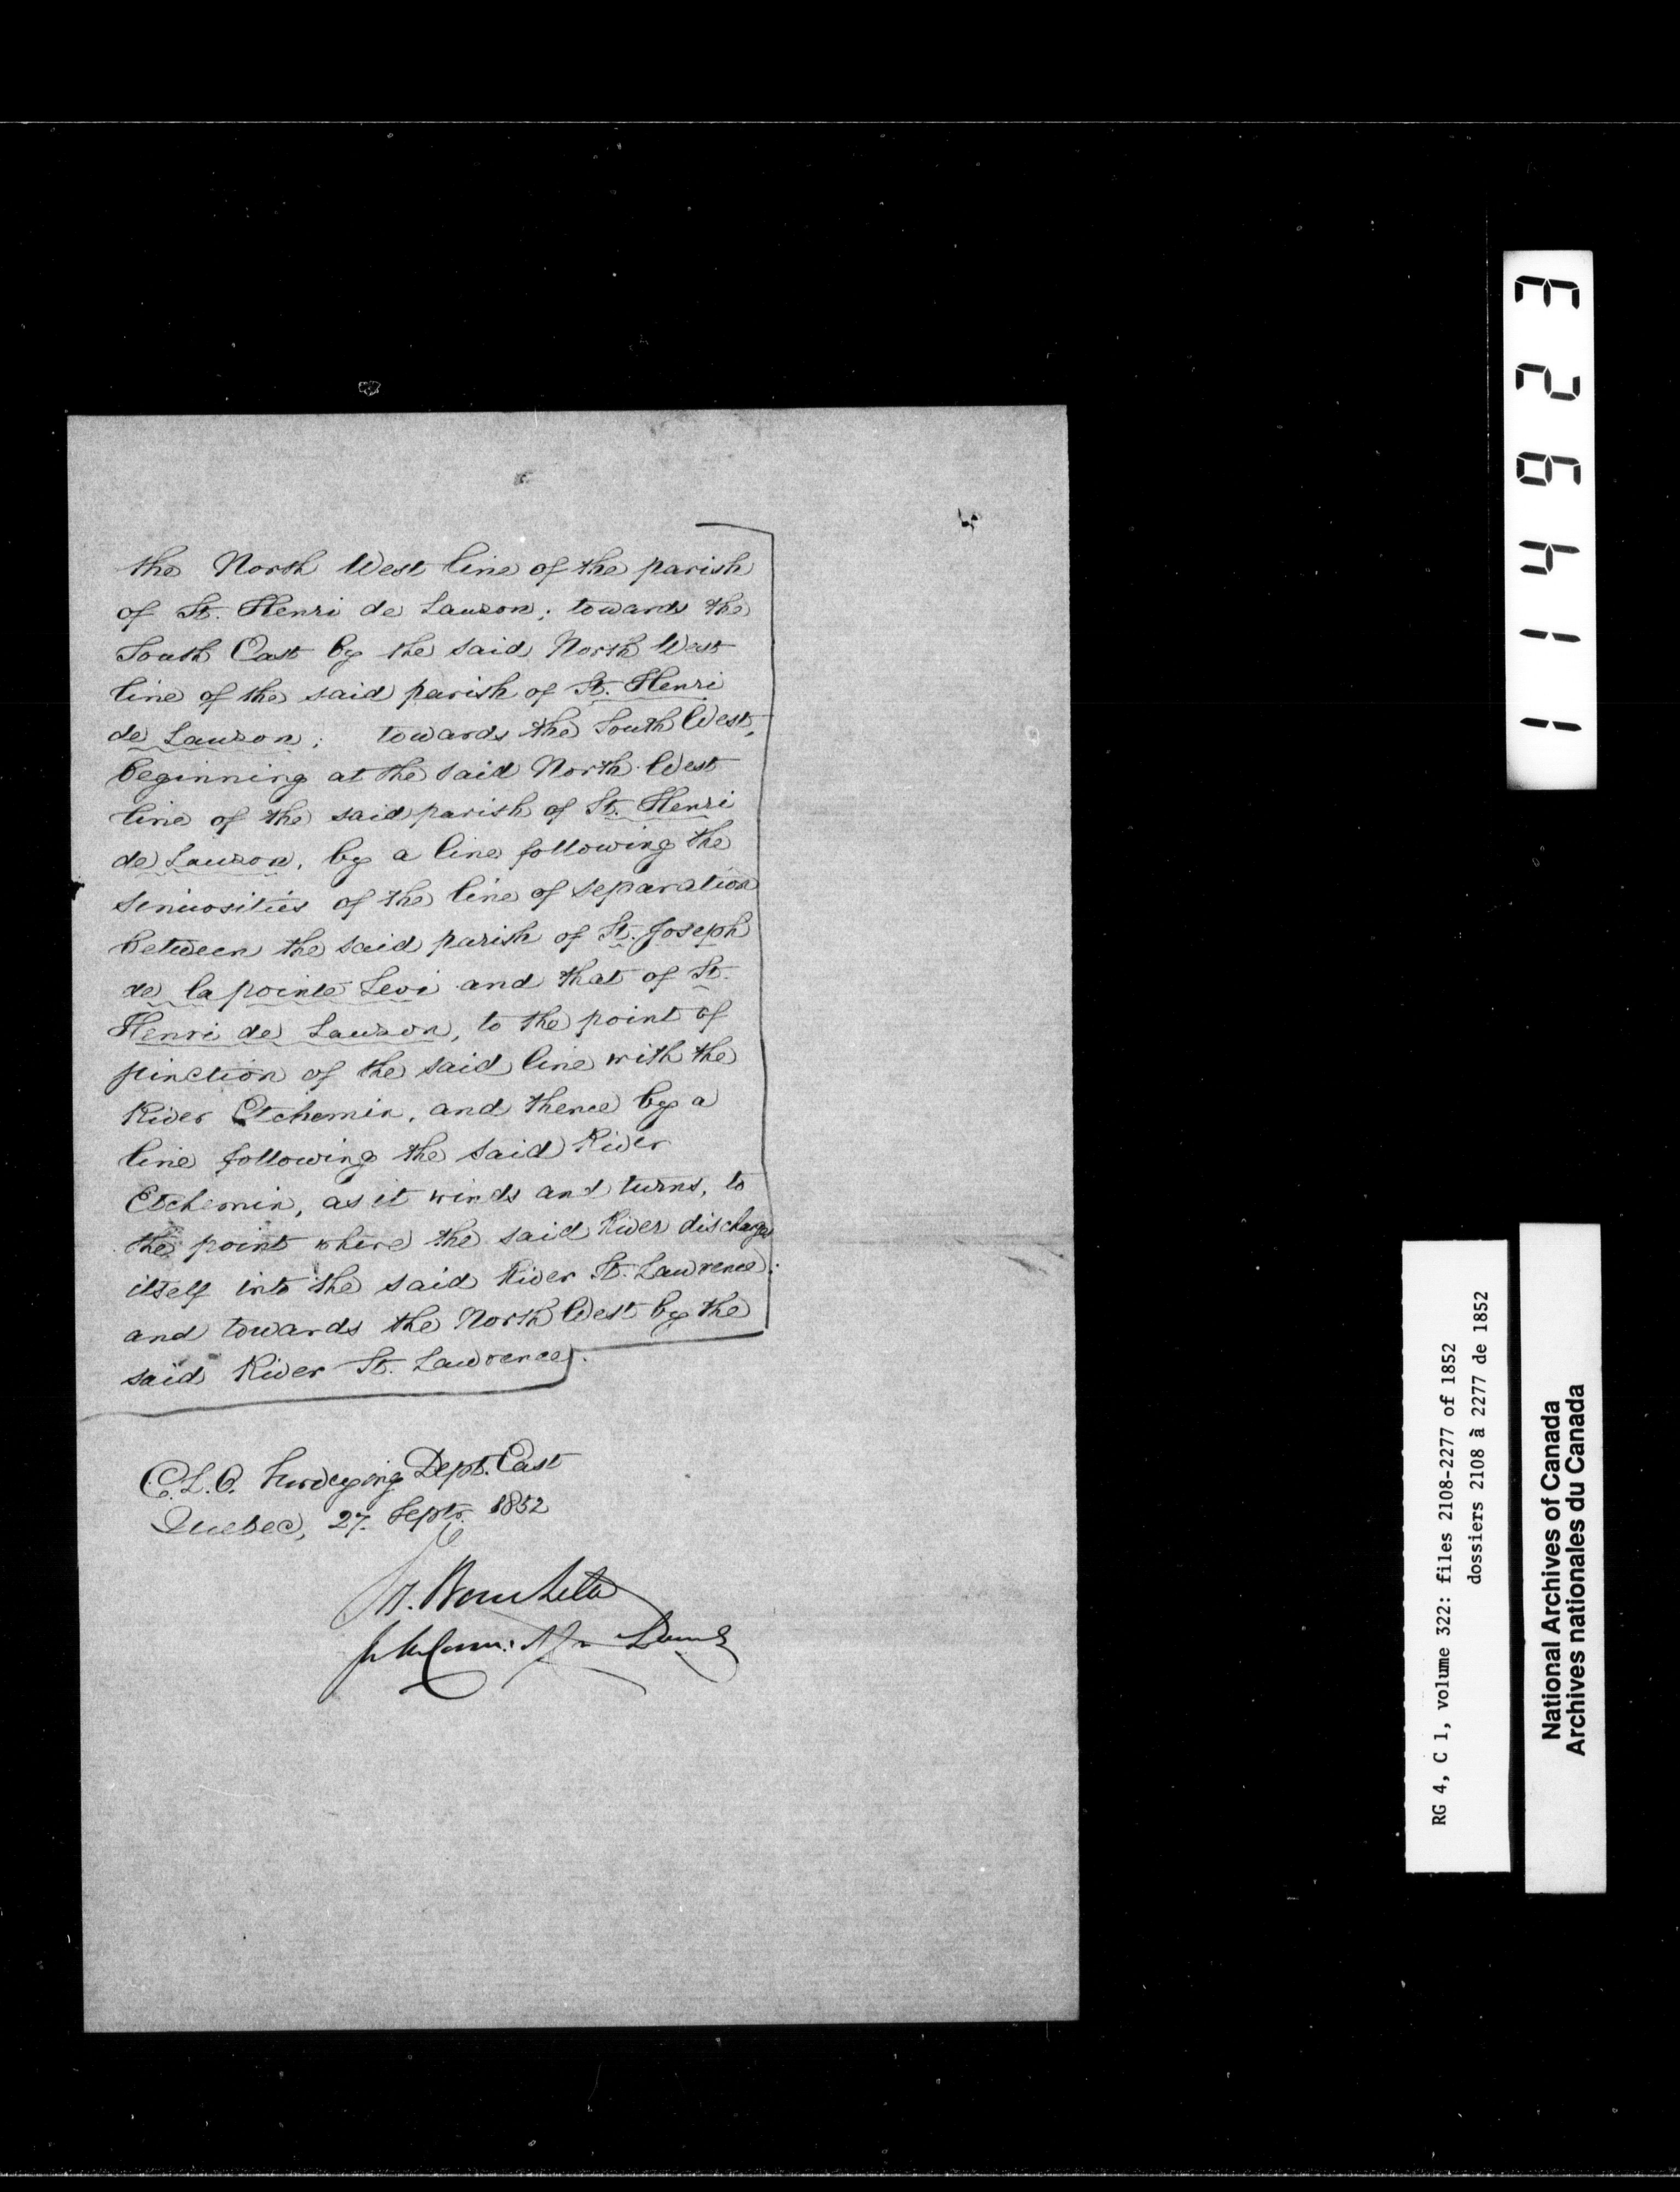 the North West line of the parish
of St. Henri de Lauzon; towards the
South East by the said North West
line of the said parish of St. Henri
de Lauzon; towards the South West,
beginning at the said North West
line of the said parish of St. Henri
de Lauzon, by a line following the
sinuosities of the line of separation
between the said parish of St. Joseph
de la pointe Levi and that of St.
Henri de Lauzon, to the point of
junction of the said line with the
River Etchemin, and thence by a
line following the said River
Etchemin, as it winds and turns, to
the point where the said River discharges
itself into the said River St. Lawrence;
and towards the North West by the
said River St. Lawrence.
C.L.O. Surveying Dept. East
Quebec, 27. Septr. 1852
Bouchette
114623
RG 4, C 1, volume 322: files 2108-2277 of 1852
dossiers 2108 à 2277 de 1852
National Archives of Canada
Archives nationales du Canada